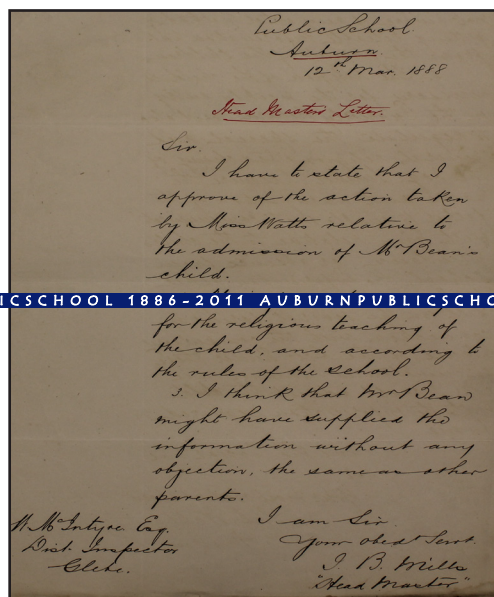 Public School.
Auburn.
12th Mar. 1888
Head Masters Letter.
Sir.
I have to state that I
approve of the action taken
by Miss Watts relative to
the admission of Mr Bean's
child.
ICSCHOOL 1886-2011 AUBURNPUBLICSCHO
for the religious teaching of
the child, and according to
the rules of the school.
3. I think that Mr Bean
might have supplied the
information without any
objection, the same as other
parents.
I am Sir
Your Obedt Servt.
J. B. Mills
"Head Master"
W McIntyre Esq.
Dist. Inspector
Glebe.